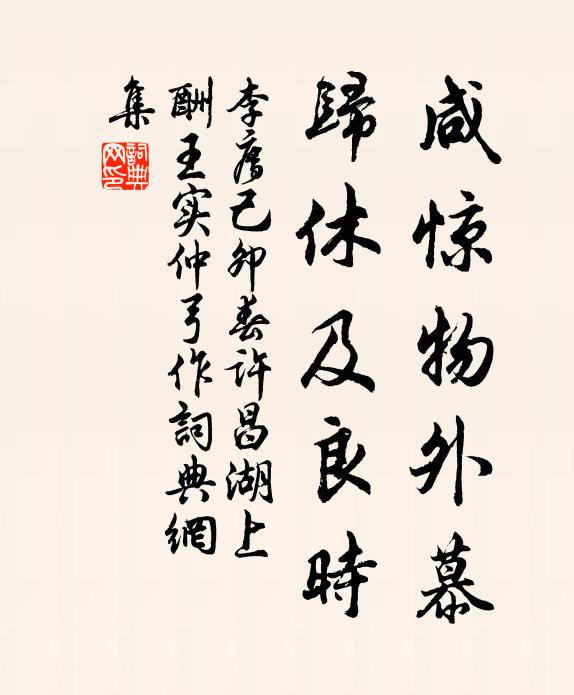 咸惊物外慕
歸休及良時
李廌己卯春許昌湖上
酬王实仲弓作詞典網
集
詞典网印